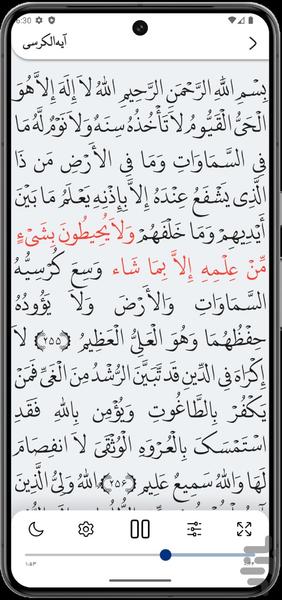 6:30
آیه‌الکرسی
بِسْمِ اللهِ الرَّحْمَنِ الرَّحِيمِ اللهُ لاَ إِلَهَ إِلاَّ هُوَ
الْحَيُّ الْقَيُّومُ لاَ تَأْخُذُهُ سِنَةٌ وَلاَ نَوْمٌ لَهُ مَا
فِي السَّمَاوَاتِ وَمَا فِي الأَرْضِ مَن ذَا
الَّذِي يَشْفَعُ عِنْدَهُ إِلاَّ بِإِذْنِهِ يَعْلَمُ مَا بَيْنَ
أَيْدِيهِمْ وَمَا خَلْفَهُمْ وَلاَ يُحِيطُونَ بِشَيْءٍ
مِّنْ عِلْمِهِ إِلاَّ بِمَا شَاء وَسِعَ كُرْسِيُّهُ
السَّمَاوَاتِ وَالأَرْضَ وَلاَ يَؤُودُهُ
حِفْظُهُمَا وَهُوَ الْعَلِيُّ الْعَظِيمُ ﴿۲۵۵﴾ لاَ
إِكْرَاهَ فِي الدِّينِ قَد تَّبَيَّنَ الرُّشْدُ مِنَ الْغَيِّ فَمَنْ
يَكْفُرْ بِالطَّاغُوتِ وَيُؤْمِن بِاللهِ فَقَدِ
اسْتَمْسَكَ بِالْعُرْوَةِ الْوُثْقَىَ لاَ انفِصَامَ
لَهَا وَاللهُ سَمِيعٌ عَلِيمٌ ﴿۲۵۶﴾ اللهُ وَلِيُّ الَّذِينَ
۱:۵۳